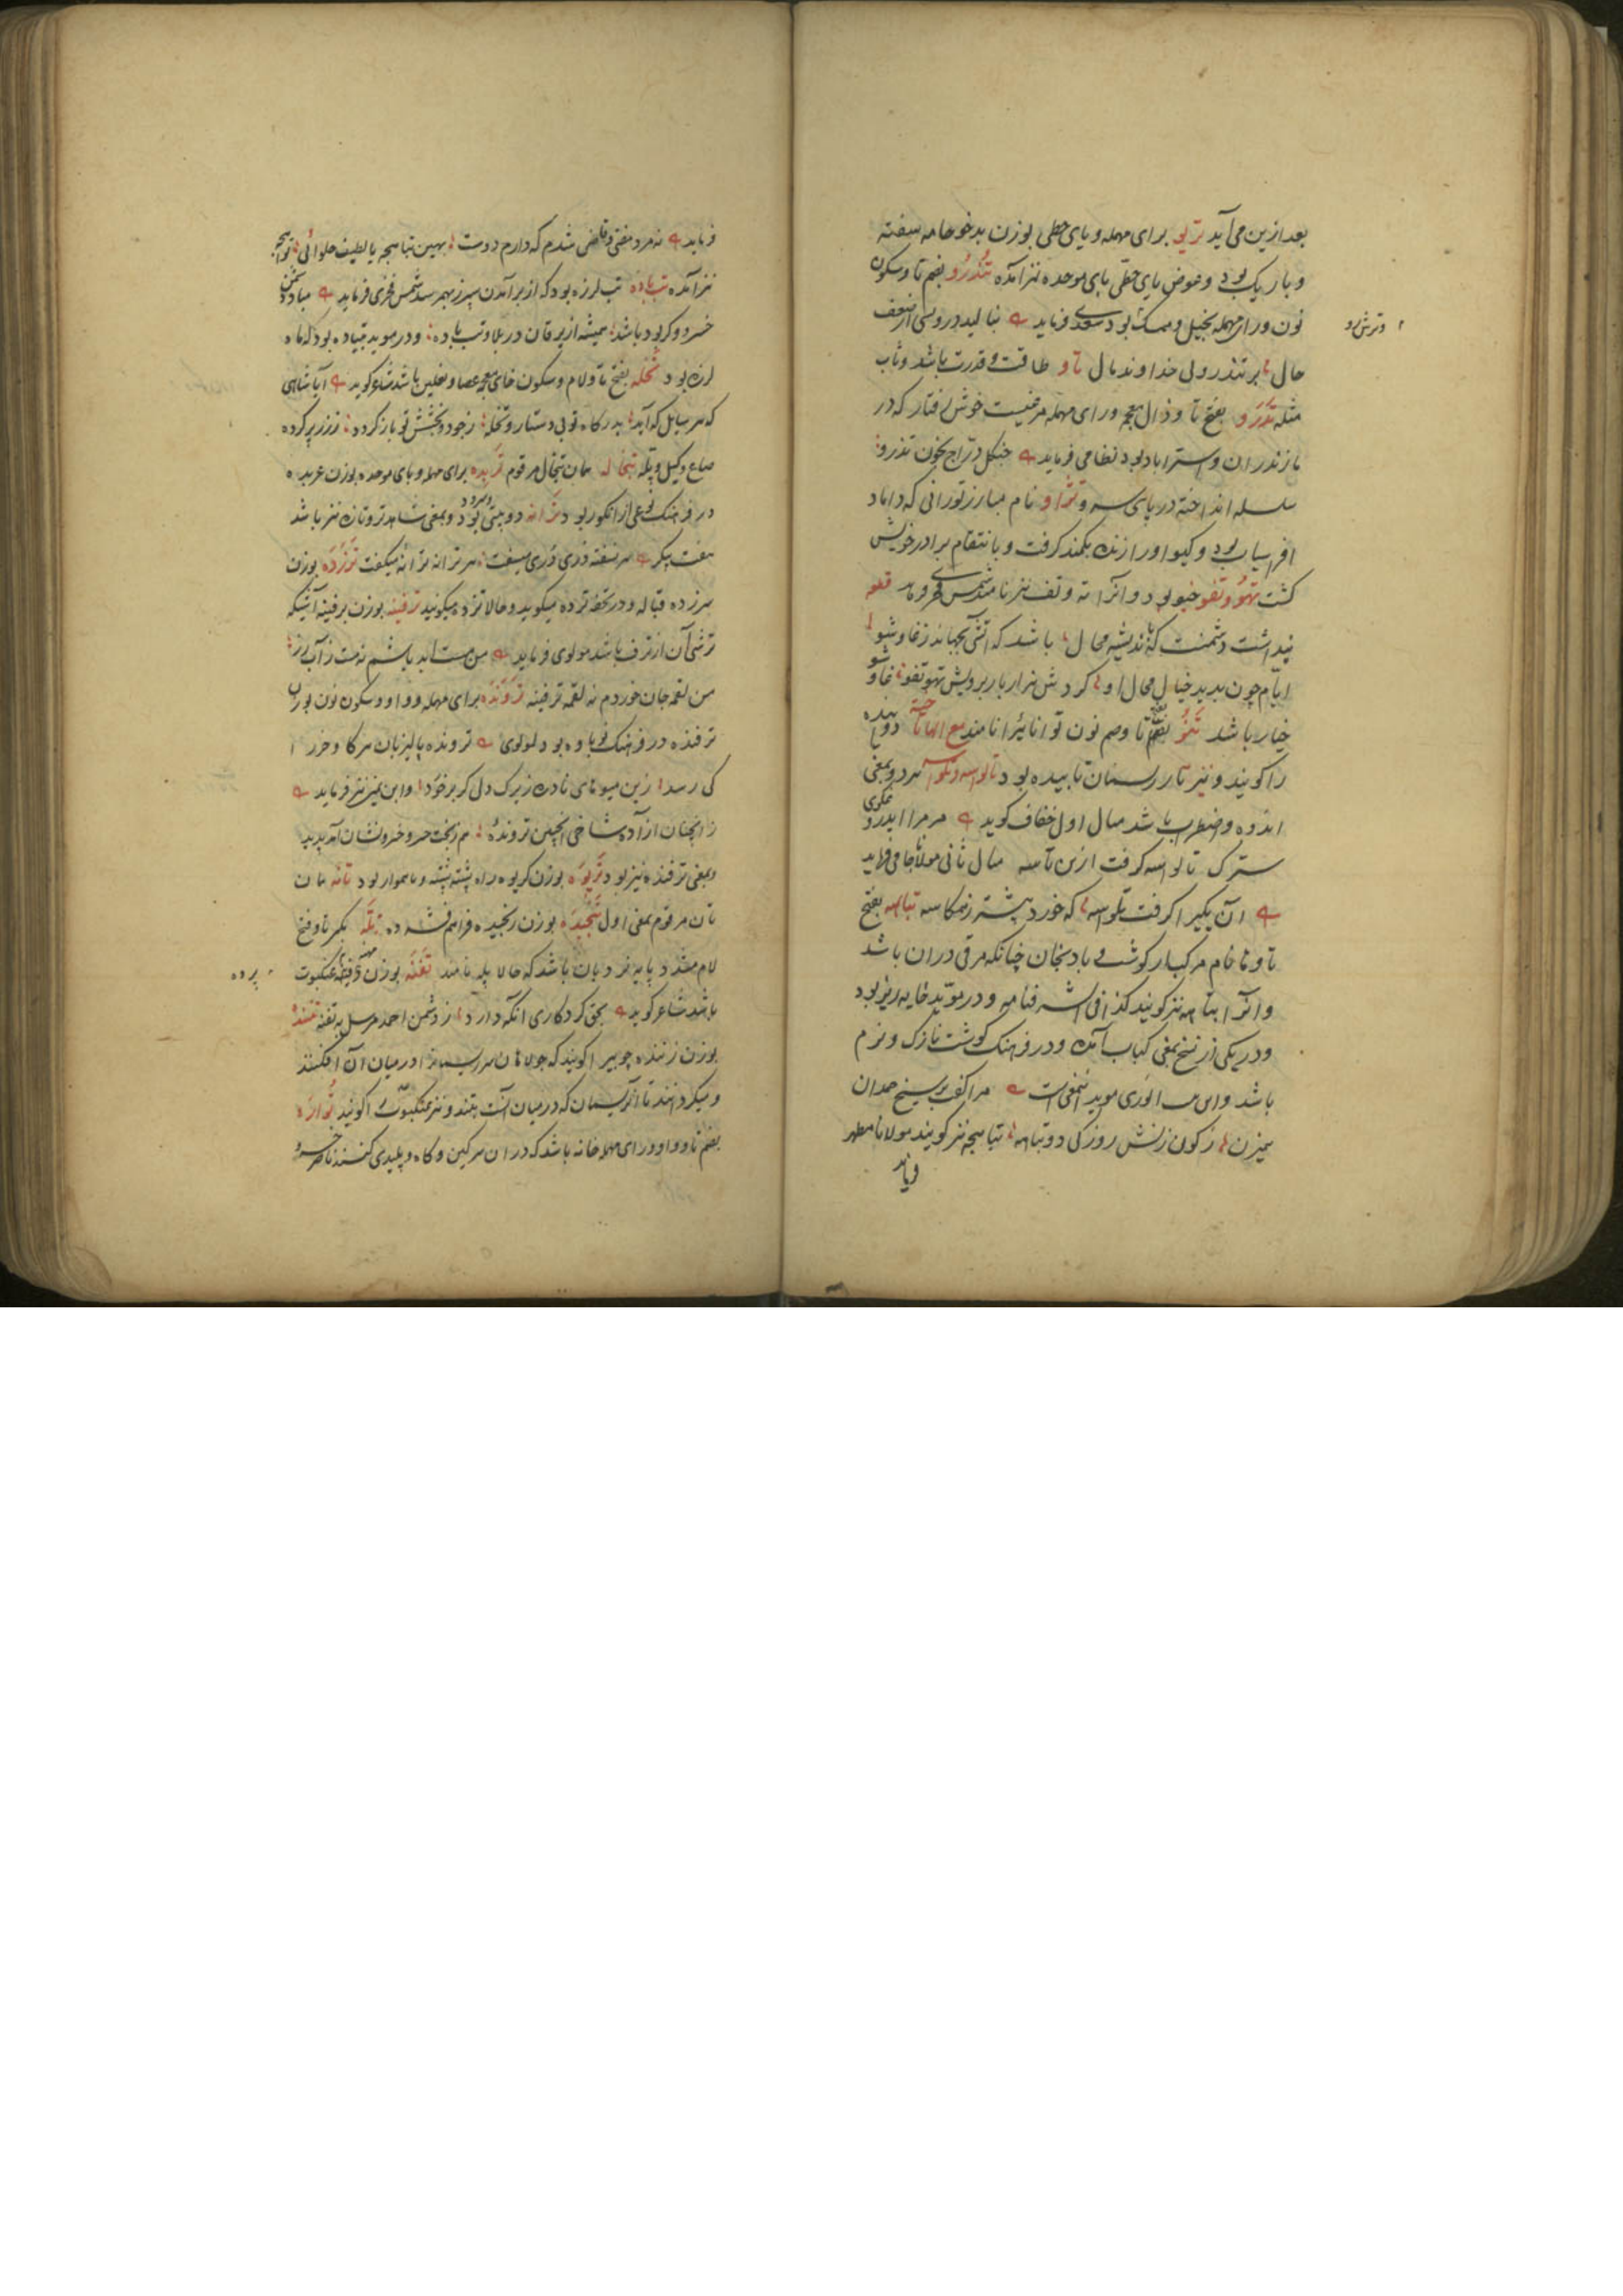 بعد ازین می آید تریو برای مهمله و یای حطی بوزن بدخو جامه سفته
و باریک بود و عوض یای حطی بای موحده نیز آمده تندرو بضم تا و سکون
نون و رای مهمله بخیل و ممسک بود سعدی فرماید نبالید درویشی از ضعف
و ترش رو
حال بر تندروئی خداوند مال تاو طاقت و قدرت باشد و تاب
مثله تذرو بفتح تا و ذال معجم و رای مهمله مرغیست خوش رفتار که در
مازندران و استراباد بود نظامی فرماید چنگل دراج بخون تذرو
سلسله انداخته در پای سرو تژاو نام مبارز تورانی که داماد
افراسیاب بود و گیو او را زنده بکمند گرفت و بانتقام برادر خویش
کشت تهو و تفو خیو بود و انرا ته و تف نیز نامند شمس فخری فرماید تفو
پنداشت دشمنت که باندیشه محال باشد که آتش بجهاند ز غاوشو
ایام چون بدید خیال محال او کردش هزار بار بر ویش تهو تفو غاوشو
خیار باشد تنو بفتح تا و ضم نون توانائی را نامند مع الها تا
را گویند و نیز تار ریسمان تابیده بود تالواسه و تلواسه هر دو بمعنی
اندوه و اضطراب باشد مثال اول خفاف گوید مر مرا ایدر
سترک تالواسه گرفت ازین تاسه مثال ثانی مولانا جامی فرماید
آن یکی را گرفت تلواسه که خورد بیشتر ز همکاسه تباهه بفتح
تا و تا خام مرکب از گوشت و بادنجان چنانکه مرقی دران باشد
و انرا تباهه نیز گویند کذا فی الشرفنامه و در مؤید خایه ریز بود
و در یکی از نسخ بمعنی کباب آمده و در فرهنگ گوشت نازک و نرم
باشد و این بیت انوری موید این معنی است مرا کفت بر سیخ حمدان
بمیزن ز کون زنش روزکی دو تباهه تباهچه نیز گویند مولانا مطهر
فرماید
فرماید نه مرد مفتی و قاضی شدم که دارم دوست بهین تباهچه یا لطیف حلوائی تواهچه
نیز آمده تب باده تب لرزه بود که از برآمدن سپرز بهم رسد شمس فخری فرماید مبادا دشمنش
خسرو و گر بود باشد همیشه از یرقان در بلا و تب باده و در موید تبیاده بود که ماه
لرزه بود تخله بفتح تا و لام و سکون خای معجم عصا و نعلین باشد شاعر گوید آیا شاهی
که هر سایل که آید بدرگاه تو بی دستار و تخله ز جود و بخشش تو باز گردد ز زر پر کرده
صاع و کیل و پله تبخاله همان تبخال مرقوم تربده برای مهمله و بای موحده بوزن عربده
در فرهنگ نوعی از انگور بود ترانه دوبیتی و سرود بود و بمعنی شاهد تر و تازه نیز باشد
هفت پیکر هر نسفته دری دری میسفت هر ترانه ترانه میگفت ترزده بوزن
سرزده قباله و در تحفه ترده میگوید و حالا تزده میگویند ترفینه بوزن برفینه آشی که
ترشی آن از ترف باشد مولوی فرماید من مست ابد باشم نه مست ز آب رز
من لقمه جان خوردم نه لقمه ترفینه ترونده برای مهمله و واو و سکون نون بوزن
ترفنده در فرهنگ نوباوه بود مولوی ترونده پالیز جان هر گاو و خر را
کی رسد زین میوهای نادره زیرک دل گر برخورد و ابن یمین نیز فرماید
زانچنان آزاده شاخی اینچنین ترونده هم ز بخت خسرو خسرو نشان آمد پدید
و بمعنی ترفنده نیز بود تریوه بوزن کریوه راه پشته پشته و ناهموار بود تانه تان
تان مرقوم بمعنی اول تنجیده بوزن رنجیده فراهم فشرده تله بکسر تا و فتح
لام مشدد پایه نردبان باشد که حالا پله نامند تفنه بوزن دفینه عنکبوت
پرده
باشد شاعر گوید بحق کردگاری آنکه دارد ز دشمن احمد مرسل به تفنه تنده
بوزن زنده چوبی را گویند که جولاهان سر ریسمان را در میان آن افکنند
و میگردانند تا آن ریسمان که در میان آنست بتنند و نیز عنکبوت را گویند تواره
بضم تا و واو و رای مهمله خانه باشد که در ان سرگین و کاه و پلیدی کنند ناصر خسرو